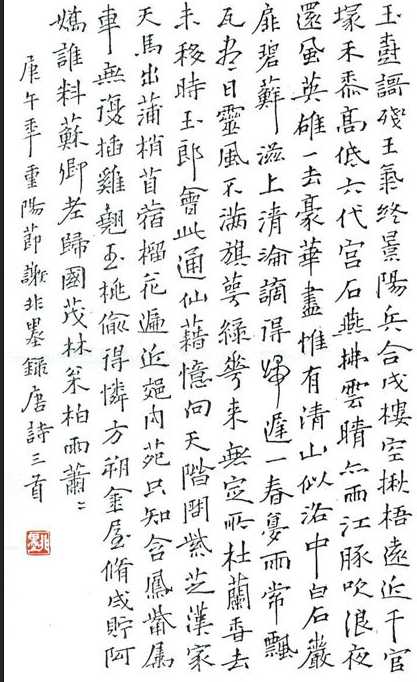 玉樹謌殘王氣終景陽兵合戍樓空楸梧遠近千官
塚禾黍高低六代宫石燕拂雲晴亦雨江豚吹浪夜
還風英雄一去豪華盡惟有清山似洛中白石巖
扉碧蘚滋上清淪謫得歸遲一春夢雨常飄
瓦盡日靈風不滿旗萼緑華來無定所杜蘭香去
未移時玉郎會此通仙藉憶向天階問紫芝漢家
天馬出蒲梢苜蓿榴花遍近郊内苑只知含鳳觜屬
車無復插雞翹玉桃偷得憐方朔金屋脩成貯阿
嬌誰料蘇卿老歸國茂林枀柏雨蕭〻
庚午年重陽節謝非墨録唐詩三首